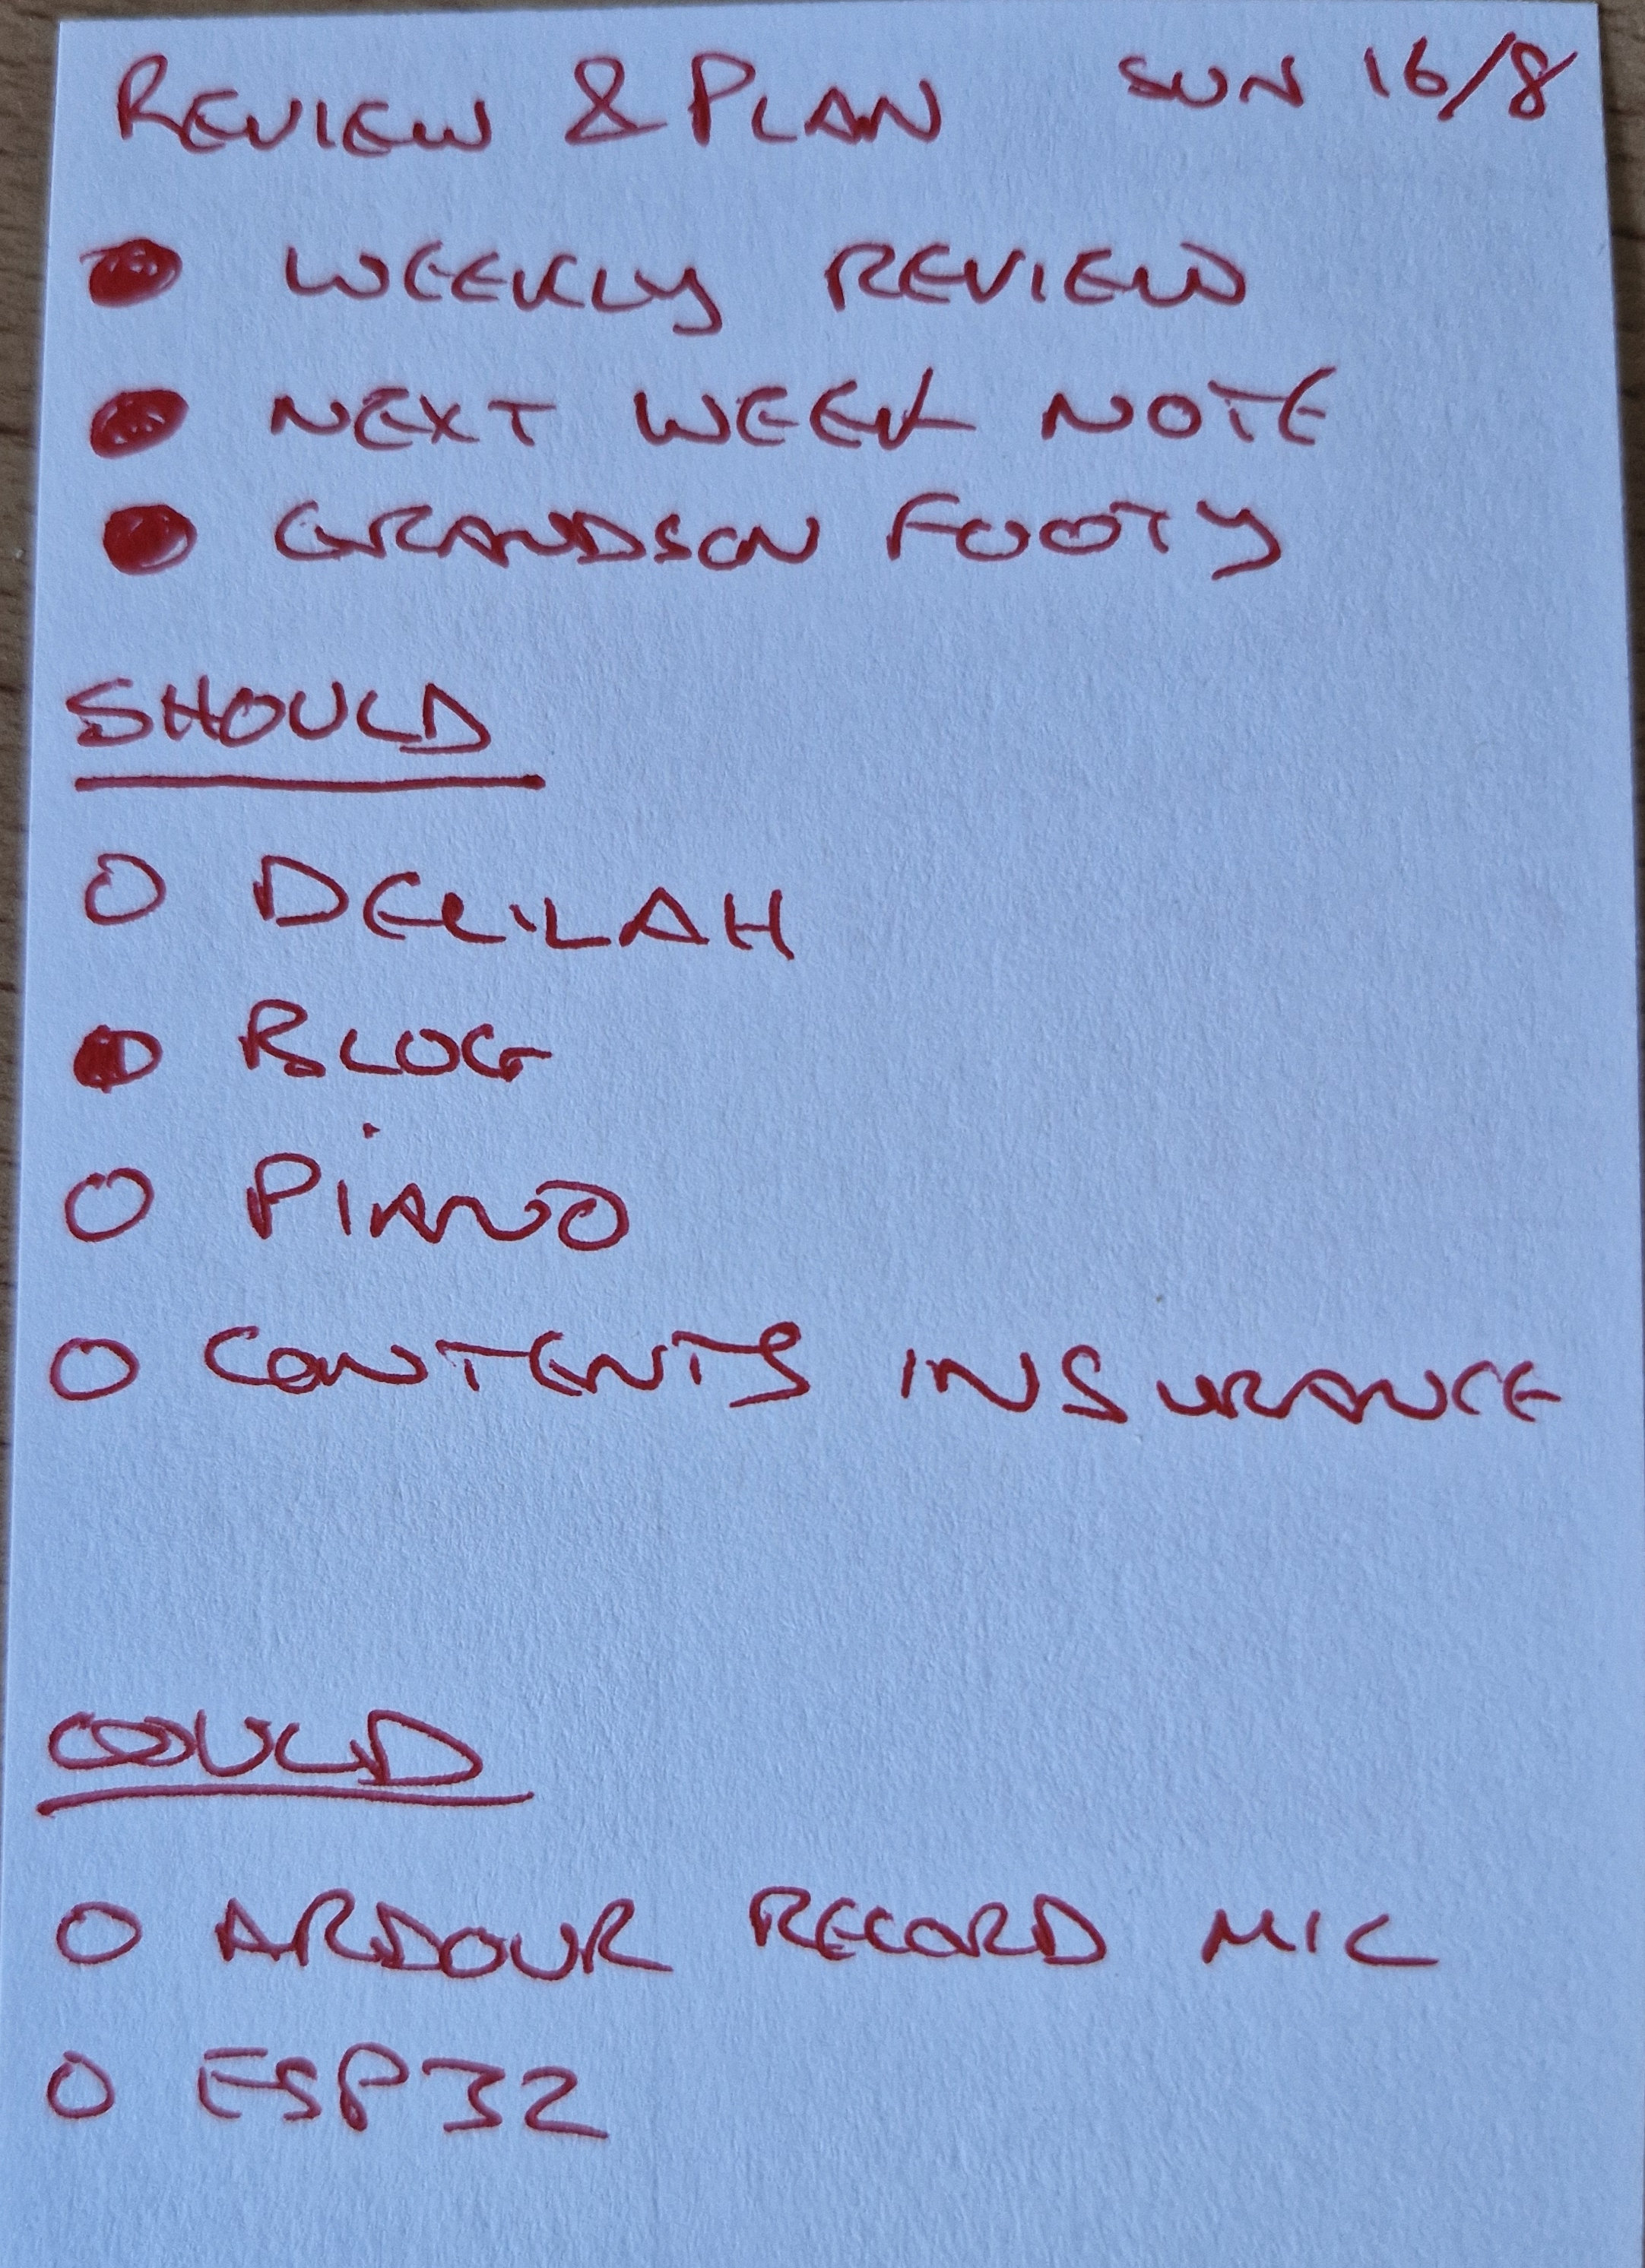 REVIEW & PLAN SUN 16/8
WEEKLY REVIEW
NEXT WEEK NOTE
GRANDSON FOOTY
SHOULD
DELILAH
BLOG
PIANO
CONTENTS INSURANCE
COULD
ARDOUR RECORD MIC
ESP32